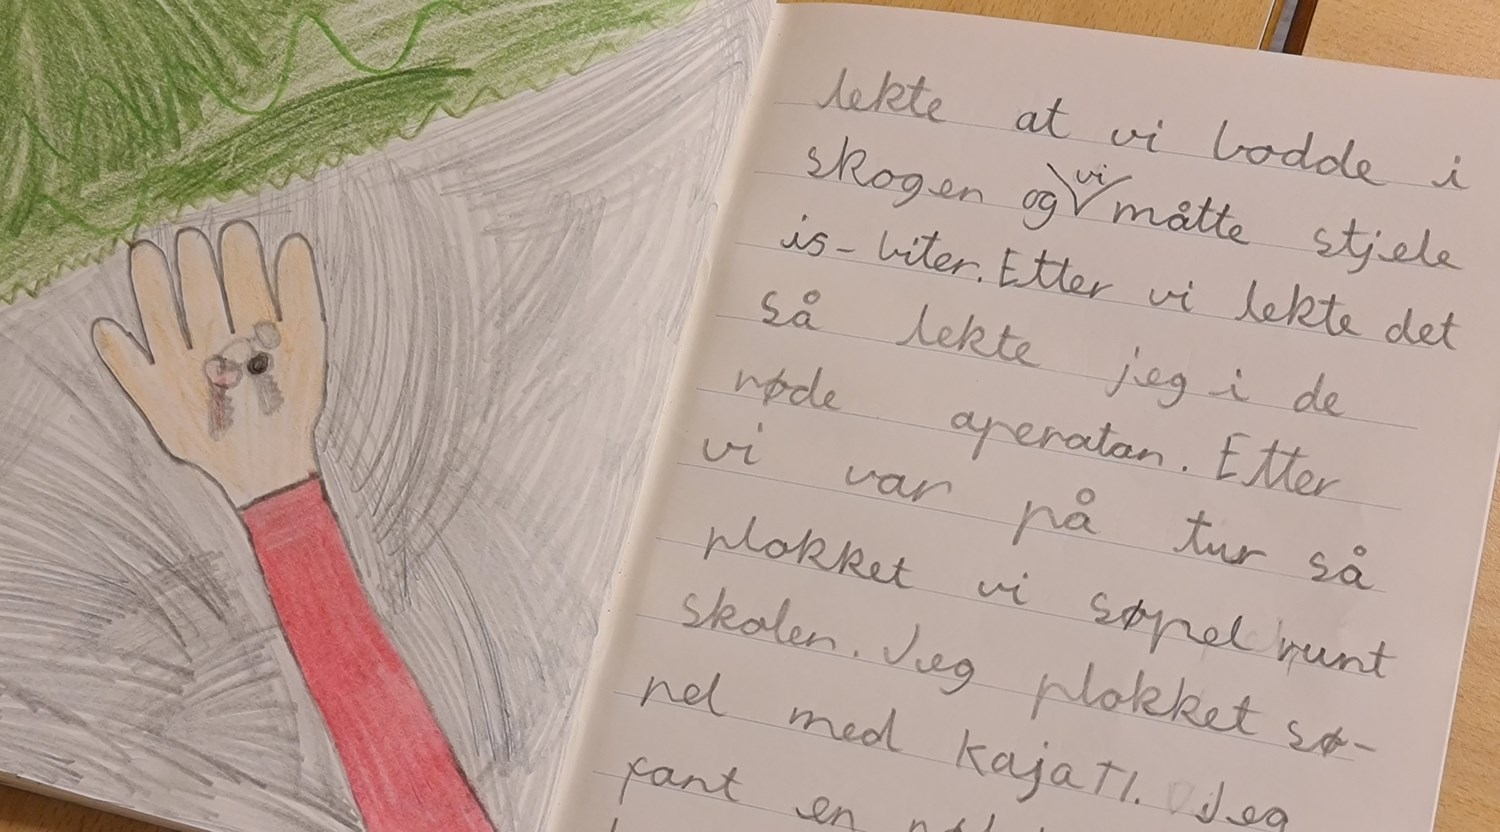 lekte at vi bodde i
skogen og vi måtte stjele
is-biter. Etter vi lekte det
så lekte jeg i de
røde aperatan. Etter
vi var på tur så
plokket vi søpel runt
skolen. Jeg plokket sø-
pel med Kaja TL. Jeg
fant en